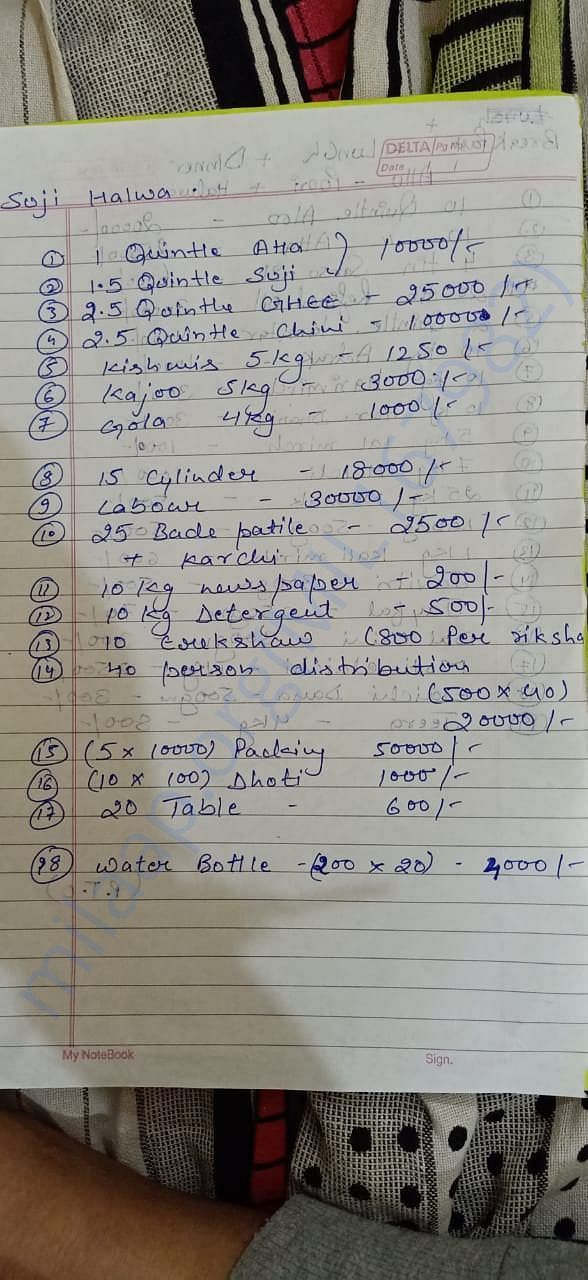 DELTA/Pg No.
Date / /
Suji Halwa.
① 1 Quintle Atta } 10000/-
② 1.5 Quintle Suji
③ 2.5 Quintle GHEE - 25000/-
④ 2.5 Quintle Chini - 100000/-
⑤ Kishmis 5kg - 1250/-
⑥ Kajoo 5kg - 3000/-
⑦ Gola 4kg - 1000/-
⑧ 15 cylinder - 18000/-
⑨ Labour - 30000/-
⑩ 25 Bade patile - 2500/-
+ Karchi
⑪ 10 Kg newspaper - 200/-
⑫ 10 kg Detergent - 500/-
⑬ 10 (800 Per riksha
⑭ 40 person distribution
(500 x 40)
20000/-
⑮ (5 x 10000) Packing 50000/-
⑯ (10 x 100) Dhoti 1000/-
⑰ 20 Table - 600/-
⑱ Water Bottle - (200 x 20) - 4000/-
My NoteBook Sign.
milaap.org